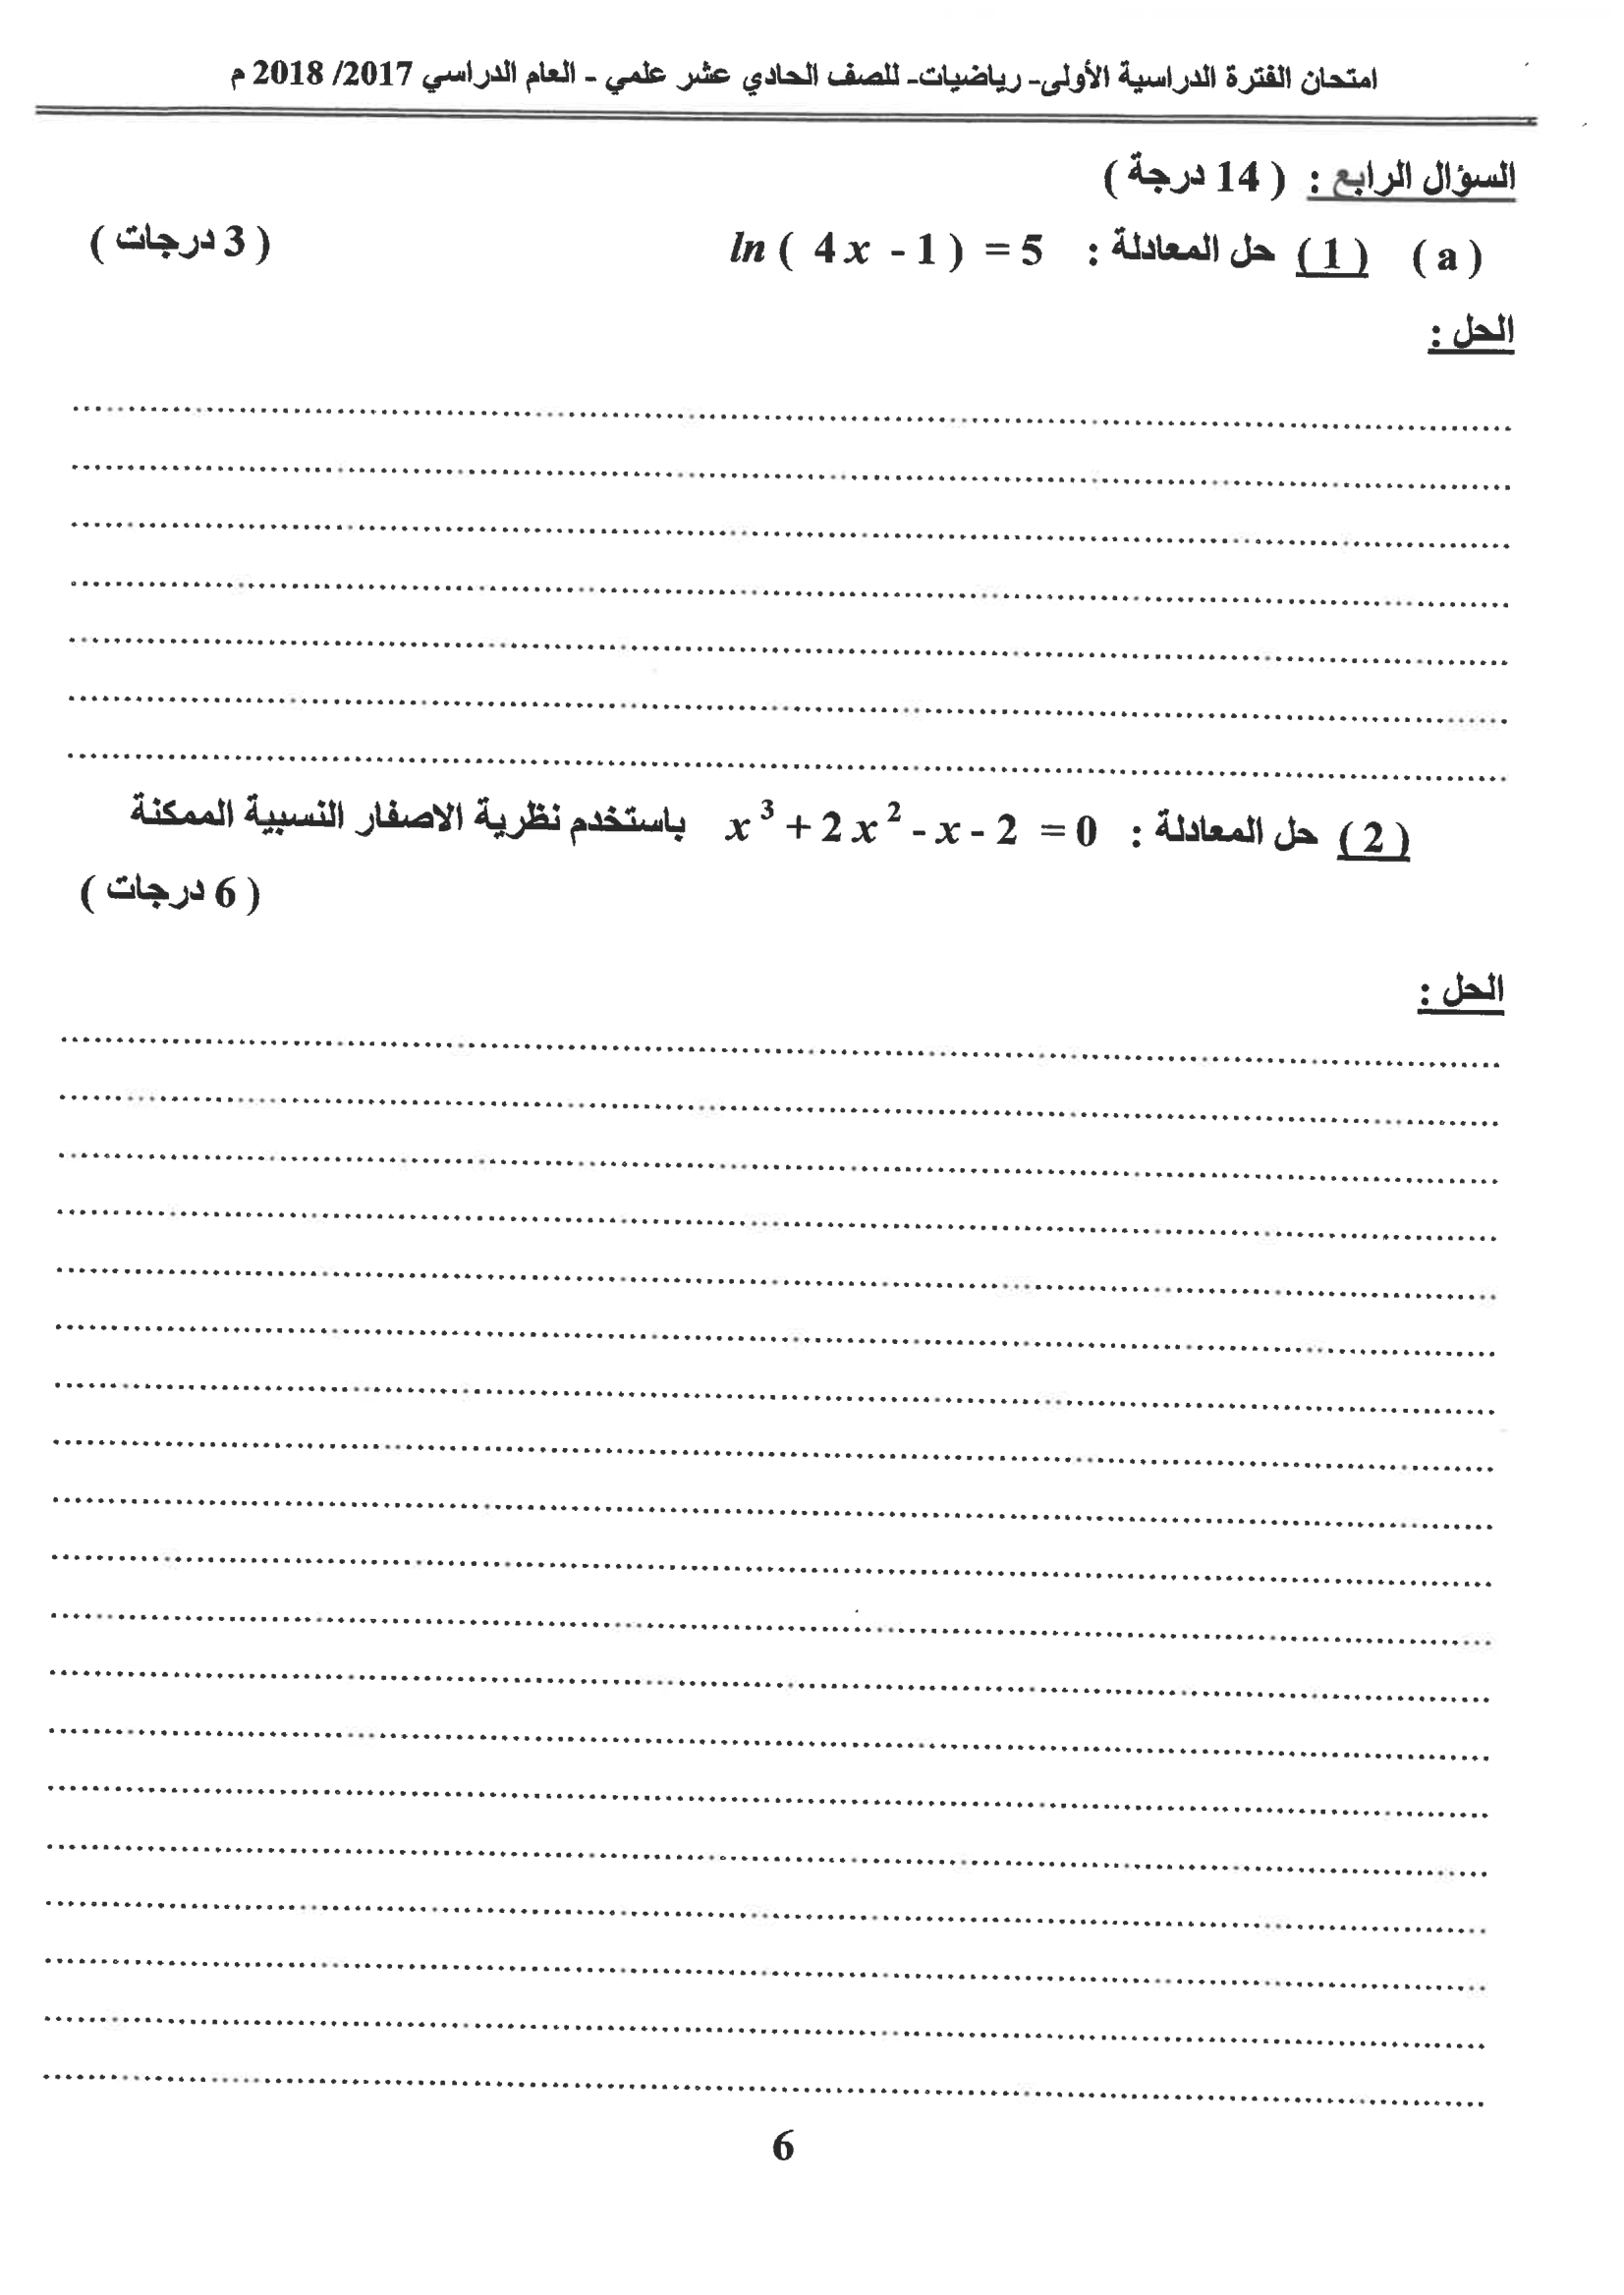 امتحان الفترة الدراسية الأولى- رياضيات- للصف الحادي عشر علمي - العام الدراسي 2017/ 2018 م
السؤال الرابع : ( 14 درجة )
( a ) ( 1 ) حل المعادلة : ln ( 4x - 1 ) = 5 ( 3 درجات )
الحل :
( 2 ) حل المعادلة : x³ + 2x² - x - 2 = 0 باستخدم نظرية الاصفار النسبية الممكنة
( 6 درجات )
الحل :
6